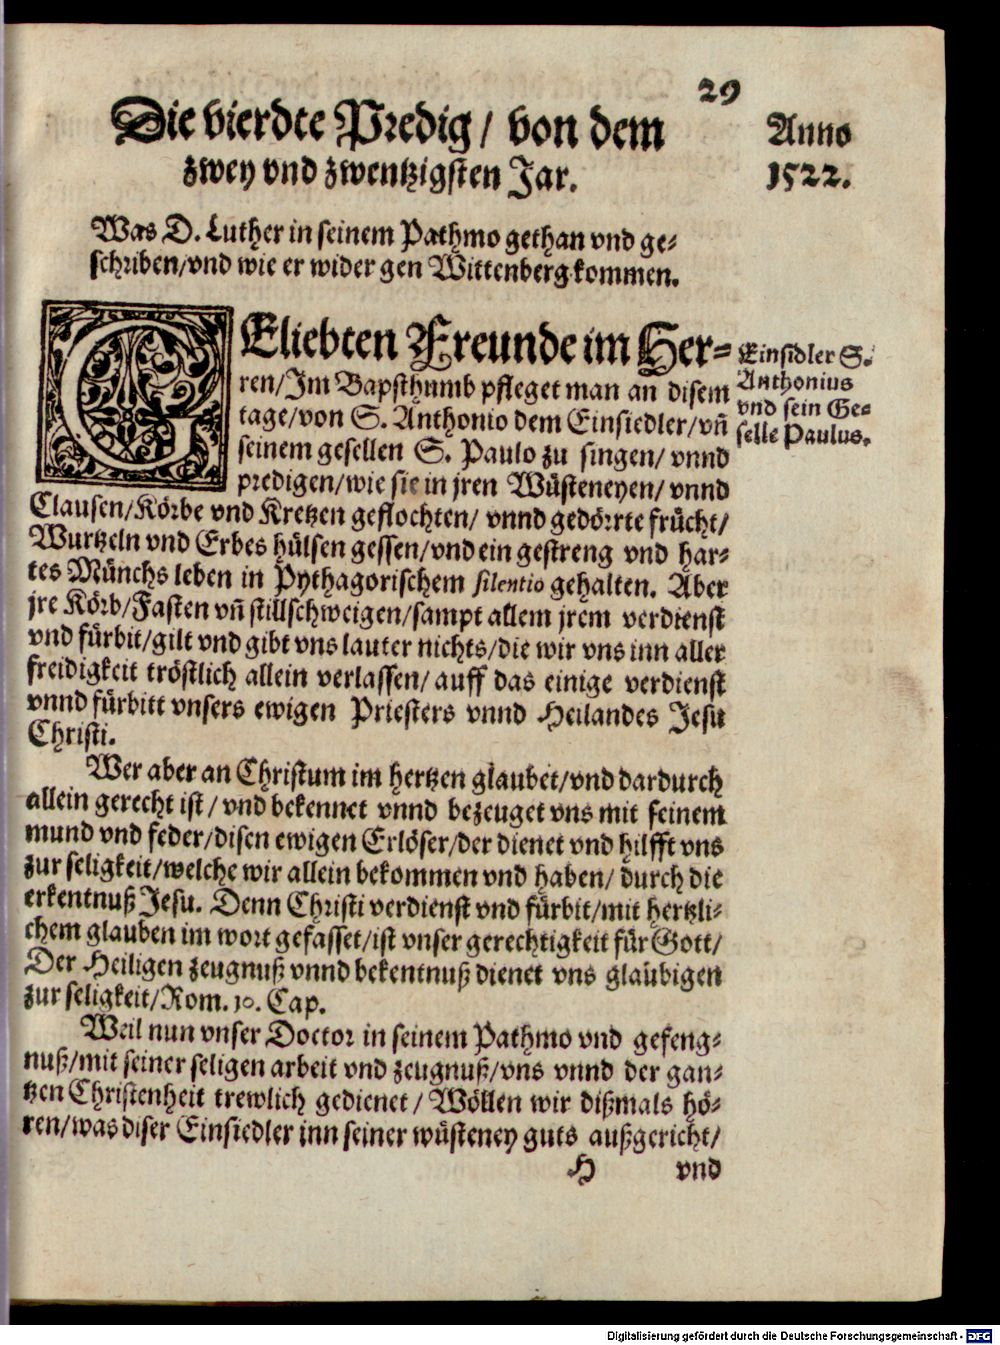 29
Die vierdte Predig / von dem
zwey vnd zwentzigsten Jar.
Anno
1522.
Was D. Luther in seinem Pathmo gethan vnd ge-
schriben/vnd wie er wider gen Wittenberg kommen.
GEliebten Freunde im Her-
ren/Im Bapsthumb pfleget man an disem
tage/von S. Anthonio dem Einsiedler/vñ
seinem gesellen S. Paulo zu singen/ vnnd
predigen/wie sie in jren Wüsteneyen/ vnnd
Clausen/Körbe vnd Kretzen geflochten/ vnnd gedörrte frücht/
Wurtzeln vnd Erbes hülsen gessen/vnd ein gestreng vnd har-
tes Münchs leben in Pythagorischem silentio gehalten. Aber
jre Körb/Fasten vñ stillschweigen/sampt allem jrem verdienst
vnd fürbit/gilt vnd gibt vns lauter nichts/die wir vns inn aller
freidigkeit tröstlich allein verlassen/ auff das einige verdienst
vnnd fürbitt vnsers ewigen Priesters vnnd Heilandes Jesu
Christi.
Einsidler S.
Anthonius
vnd sein Ge-
selle Paulus.
Wer aber an Christum im hertzen glaubet/vnd dardurch
allein gerecht ist/ vnd bekennet vnnd bezeuget vns mit seinem
mund vnd feder/disen ewigen Erlöser/der dienet vnd hilfft vns
zur seligkeit/welche wir allein bekommen vnd haben/ durch die
erkentnuß Jesu. Denn Christi verdienst vnd fürbit/mit hertzli-
chem glauben im wort gefasset/ist vnser gerechtigkeit für Gott/
Der Heiligen zeugnuß vnnd bekentnuß dienet vns glaübigen
zur seligkeit/Rom. 10. Cap.
Weil nun vnser Doctor in seinem Pathmo vnd gefeng-
nuß/mit seiner seligen arbeit vnd zeugnuß/vns vnnd der gan-
tzen Christenheit trewlich gedienet/ Wöllen wir dißmals hö-
ren/was diser Einsiedler inn seiner wüsteney guts außgericht/
H vnd
Digitalisierung gefördert durch die Deutsche Forschungsgemeinschaft - DFG